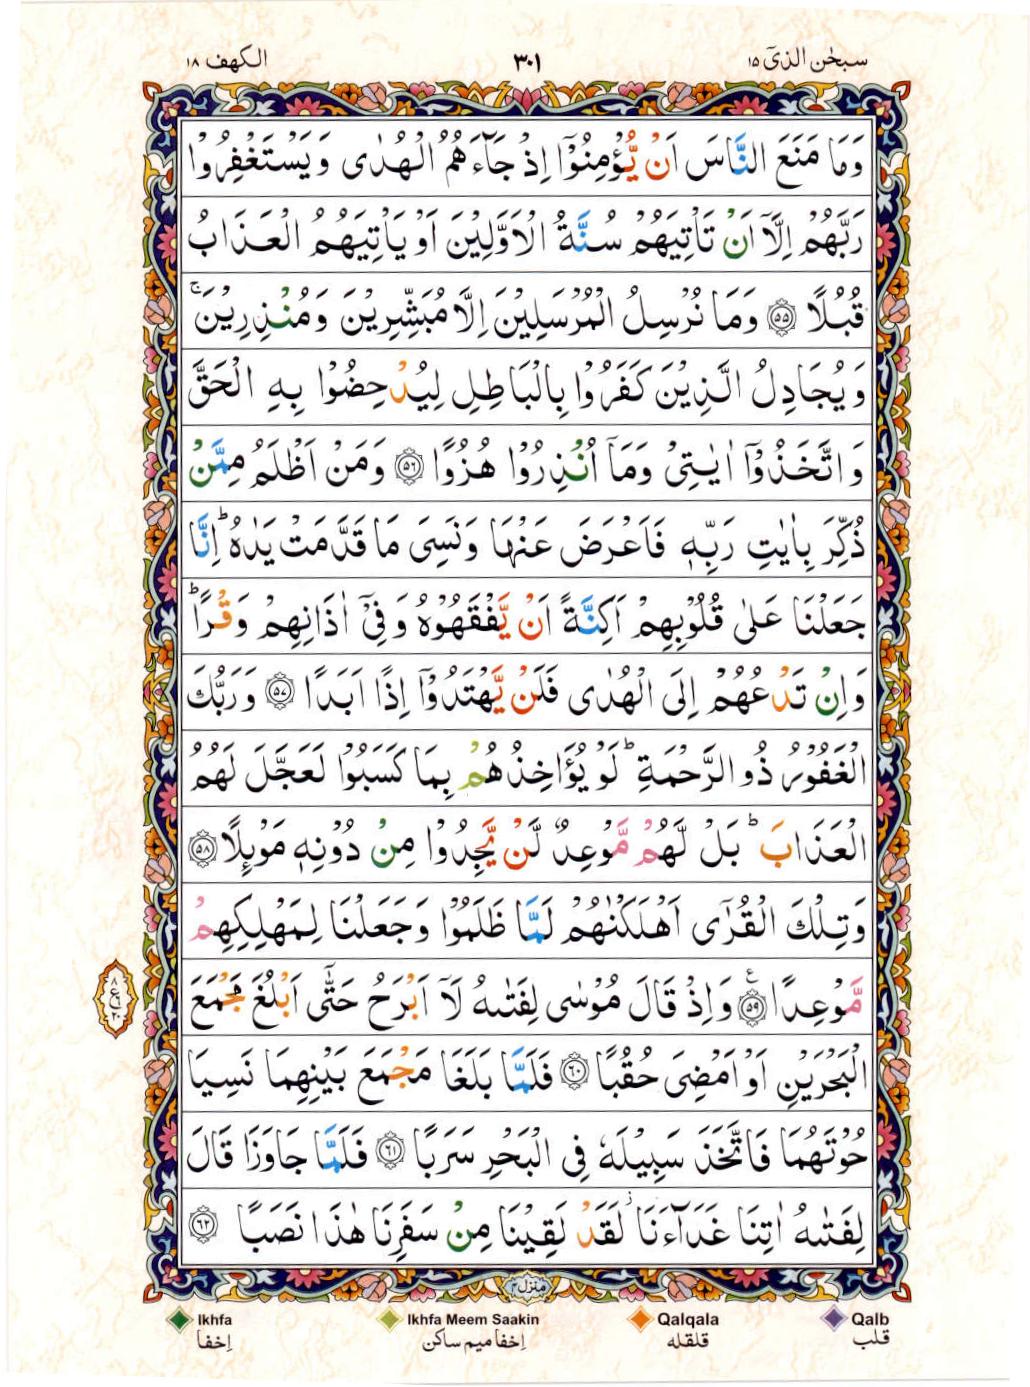 سبحٰن الذیٓ ۱۵
۳۰۱
الکهف ۱۸
وَمَا مَنَعَ النَّاسَ اَنْ یُّؤْمِنُوْۤا اِذْ جَآءَهُمُ الْهُدٰى وَ یَسْتَغْفِرُوْا
رَبَّهُمْ اِلَّاۤ اَنْ تَاْتِیَهُمْ سُنَّةُ الْاَوَّلِیْنَ اَوْ یَاْتِیَهُمُ الْعَذَابُ
قُبُلًا ۝۵۵ وَمَا نُرْسِلُ الْمُرْسَلِیْنَ اِلَّا مُبَشِّرِیْنَ وَمُنْذِرِیْنَ ۚ
وَیُجَادِلُ الَّذِیْنَ كَفَرُوْا بِالْبَاطِلِ لِیُدْحِضُوْا بِهِ الْحَقَّ
وَاتَّخَذُوْۤا اٰیٰتِیْ وَمَاۤ اُنْذِرُوْا هُزُوًا ۝۵۶ وَمَنْ اَظْلَمُ مِمَّنْ
ذُكِّرَ بِاٰیٰتِ رَبِّهٖ فَاَعْرَضَ عَنْهَا وَنَسِیَ مَا قَدَّمَتْ یَدٰهُ ؕ اِنَّا
جَعَلْنَا عَلٰى قُلُوْبِهِمْ اَكِنَّةً اَنْ یَّفْقَهُوْهُ وَفِیْۤ اٰذَانِهِمْ وَقْرًا ؕ
وَاِنْ تَدْعُهُمْ اِلَى الْهُدٰى فَلَنْ یَّهْتَدُوْۤا اِذًا اَبَدًا ۝۵۷ وَرَبُّكَ
الْغَفُوْرُ ذُو الرَّحْمَةِ ؕ لَوْ یُؤَاخِذُهُمْ بِمَا كَسَبُوْا لَعَجَّلَ لَهُمُ
الْعَذَابَ ؕ بَلْ لَّهُمْ مَّوْعِدٌ لَّنْ یَّجِدُوْا مِنْ دُوْنِهٖ مَوْىِٕلًا ۝۵۸
وَتِلْكَ الْقُرٰۤى اَهْلَكْنٰهُمْ لَمَّا ظَلَمُوْا وَجَعَلْنَا لِمَهْلِكِهِمْ
مَّوْعِدًا ۝۵۹ ع وَاِذْ قَالَ مُوْسٰى لِفَتٰىهُ لَاۤ اَبْرَحُ حَتّٰۤى اَبْلُغَ مَجْمَعَ
۸
ع
۲۰
الْبَحْرَیْنِ اَوْ اَمْضِیَ حُقُبًا ۝۶۰ فَلَمَّا بَلَغَا مَجْمَعَ بَیْنِهِمَا نَسِیَا
حُوْتَهُمَا فَاتَّخَذَ سَبِیْلَهٗ فِی الْبَحْرِ سَرَبًا ۝۶۱ فَلَمَّا جَاوَزَا قَالَ
لِفَتٰىهُ اٰتِنَا غَدَآءَنَا ؗ لَقَدْ لَقِیْنَا مِنْ سَفَرِنَا هٰذَا نَصَبًا ۝۶۲
منزل ۴
Qalb
Qalqala
Ikhfa Meem Saakin
Ikhfa
قلب
قلقله
اِخفا میم ساکن
اِخفا